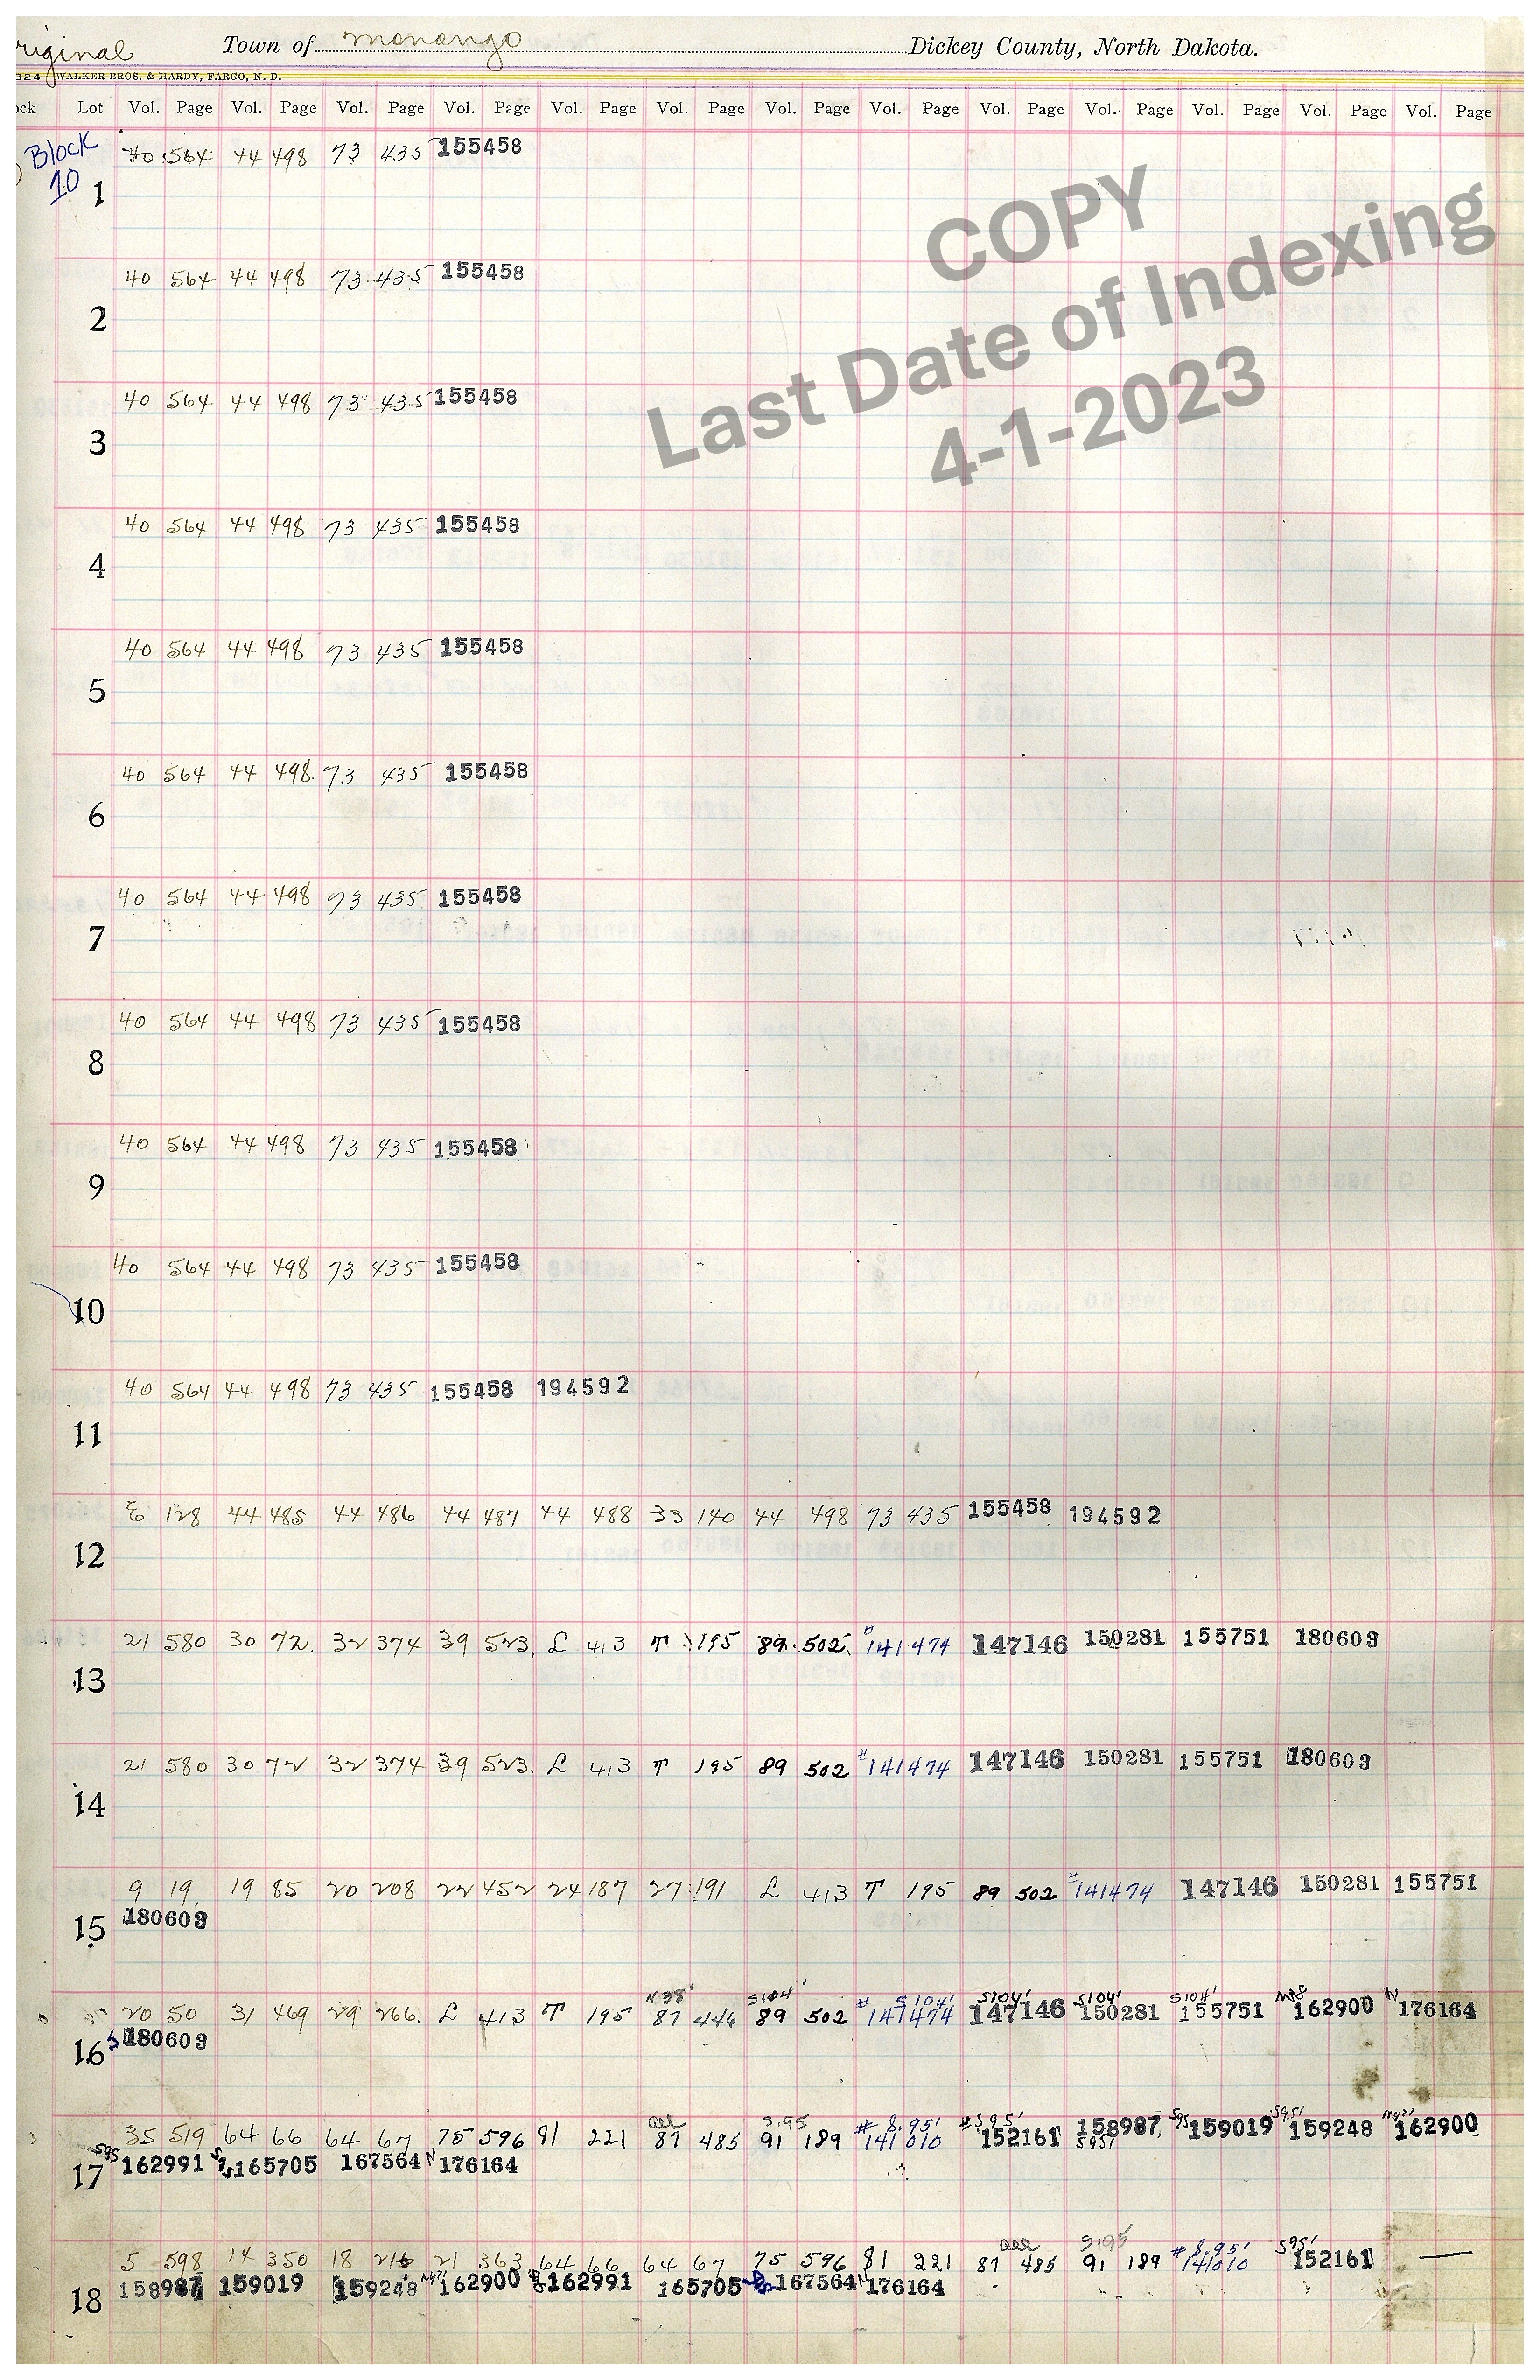 riginal Town of monango Dickey County, North Dakota.
324 WALKER BROS. & HARDY, FARGO, N. D.
ock Lot Vol. Page Vol. Page Vol. Page Vol. Page Vol. Page Vol. Page Vol. Page Vol. Page Vol. Page Vol. Page Vol. Page Vol. Page Vol. Page
Block 10
40 564 44 498 73 435 155458
1
COPY
Last Date of Indexing
4-1-2023
40 564 44 498 73 435 155458
2
40 564 44 498 73 435 155458
3
40 564 44 498 73 435 155458
4
40 564 44 498 73 435 155458
5
40 564 44 498 73 435 155458
6
40 564 44 498 73 435 155458
7
40 564 44 498 73 435 155458
8
40 564 44 498 73 435 155458
9
40 564 44 498 73 435 155458
10
40 564 44 498 73 435 155458 194592
11
128 44 485 44 486 44 487 44 488 33 140 44 498 73 435 155458 194592
12
21 580 30 72 32 374 39 523 L 413 T 195 89 502 # 141474 147146 150281 155751 180603
13
21 580 30 72 32 374 39 523 L 413 T 195 89 502 # 141474 147146 150281 155751 180603
14
9 19 19 85 20 208 22 452 24 187 27 191 L 413 T 195 89 502 # 141474 147146 150281 155751
180603
15
N 38' S104' # S104' S104' S104' S104' N38 N
20 50 31 469 29 266 L 413 T 195 87 446 89 502 141474 147146 150281 155751 162900 176164
S 180603
16
all S.95 # S.95' # S95' S95 S95'
35 519 64 66 64 67 75 596 81 221 87 485 91 189 141010 152161 158987 159019 159248 162900
S95'
S95 162991 165705 167564 N 176164
17
all S.95 # S.95' S95'
5 598 14 350 18 216 21 363 64 66 64 67 75 596 81 221 87 485 91 189 141010 152161 —
158987 159019 159248 162900 162991 165705 167564 N 176164
18